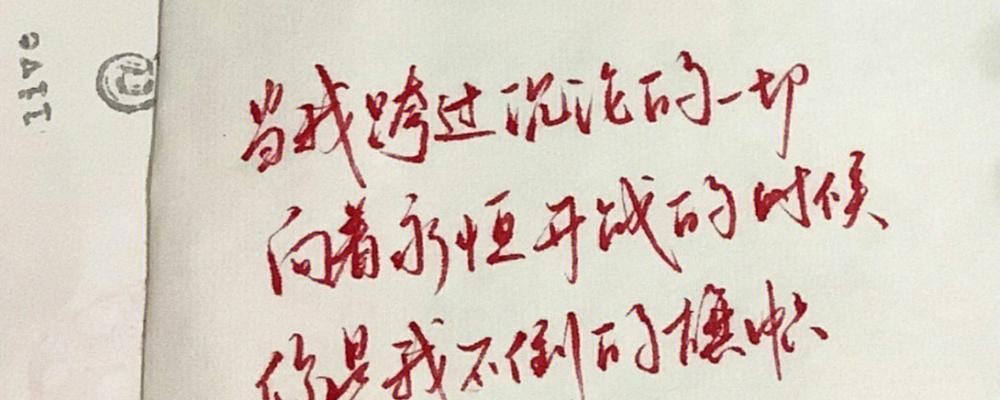 当我跨过沉沦的一切
向着永恒开战的时候
你是我不倒的旗帜